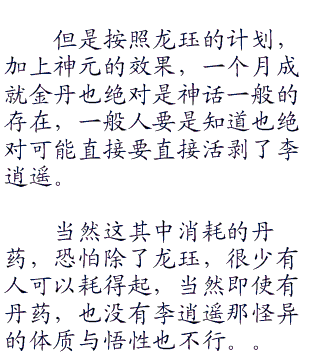 但是按照龙珏的计划，
加上神元的效果，一个月成
就金丹也绝对是神话一般的
存在，一般人要是知道也绝
对可能直接要直接活剥了李
逍遥。
当然这其中消耗的丹
药，恐怕除了龙珏，很少有
人可以耗得起，当然即使有
丹药，也没有李逍遥那怪异
的体质与悟性也不行。。